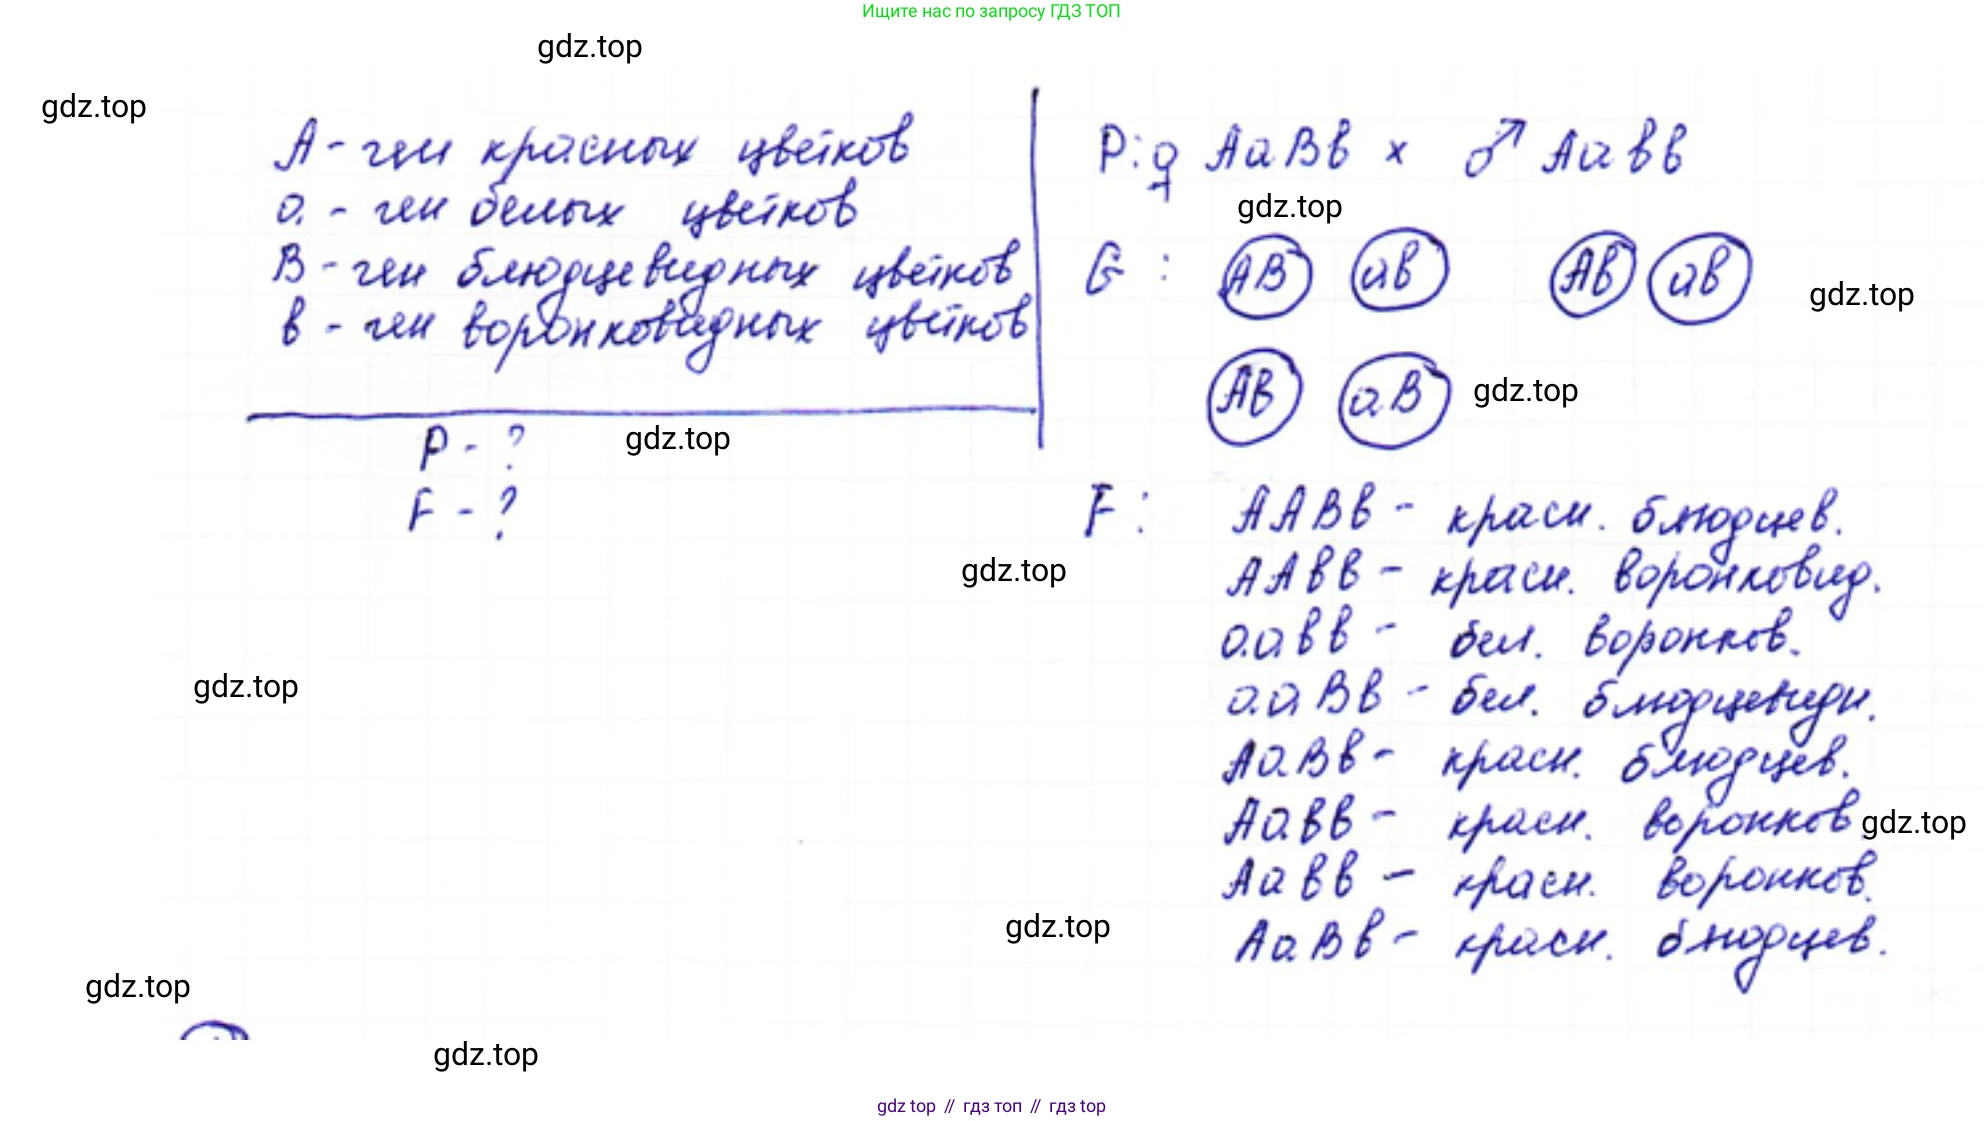 Ищите нас по запросу ГДЗ ТОП
gdz.top
gdz.top
А - ген красных цветков
а - ген белых цветков
В - ген блюдцевидных цветков
в - ген воронковидных цветков
P - ?
F - ?
gdz.top
P: ♀ АаВв × ♂ Аавв
gdz.top
G : АВ ав Ав ав
gdz.top
Ав аВ
gdz.top
F: ААВв - красн. блюдцев.
ААвв - красн. воронковид.
gdz.top
аавв - бел. воронков.
ааВв - бел. блюдцевидн.
gdz.top
АаВв - красн. блюдцев.
Аавв - красн. воронков
gdz.top
Аавв - красн. воронков.
АаВв - красн. блюдцев.
gdz.top
gdz.top
gdz.top
gdz top // гдз топ // гдз top